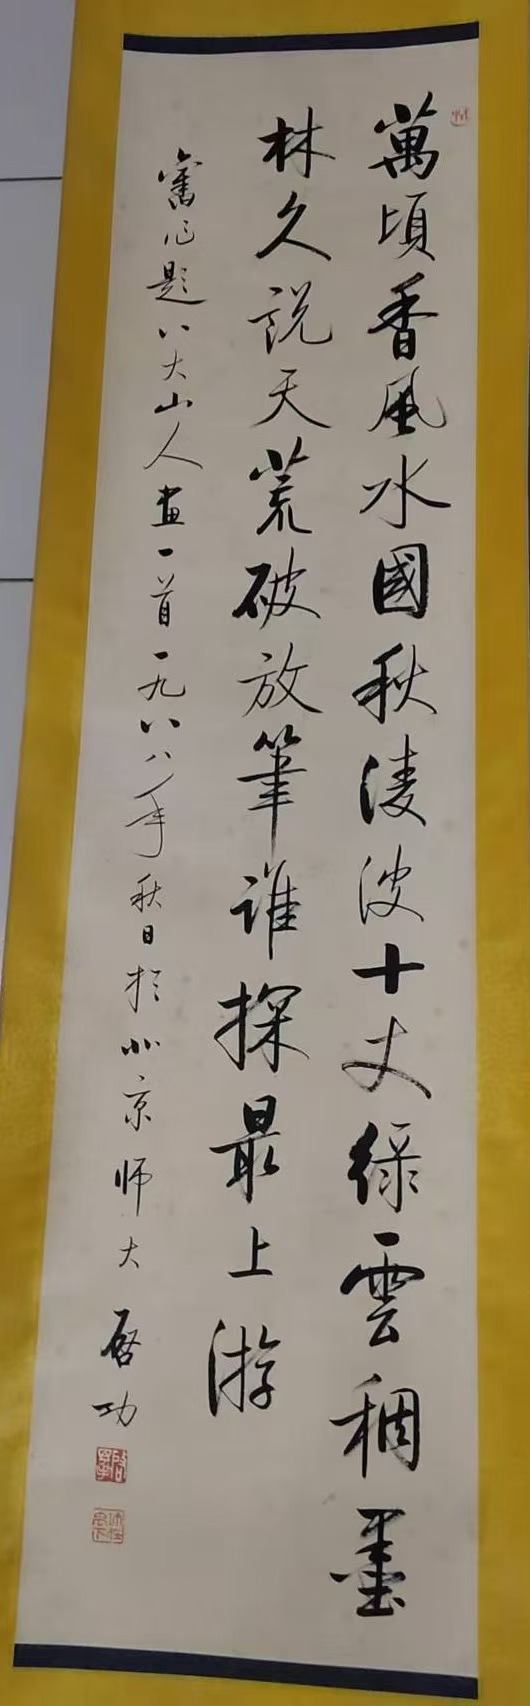 萬頃香風水國秋淩波十丈綠雲稠墨
林久說天荒破放筆誰探最上游
舊作題八大山人畫一首一九八八年秋日於北京師大
啓功